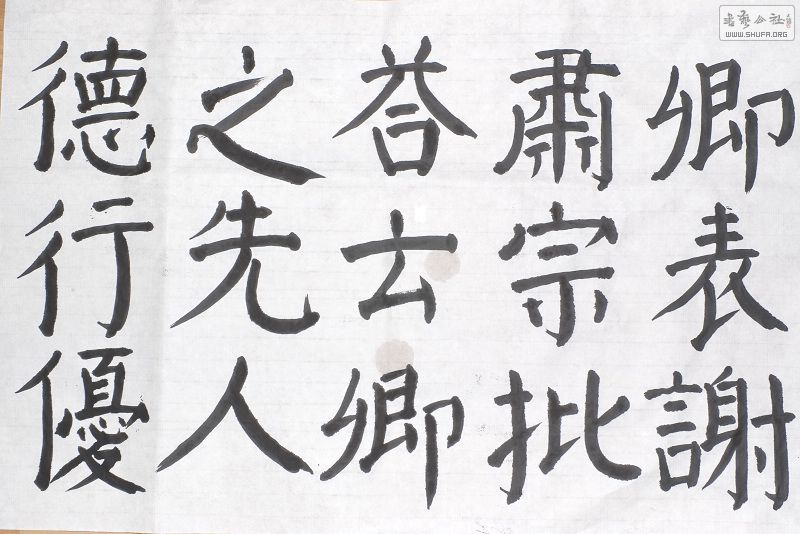 卿表謝
肅宗批
荅云卿
之先人
德行優
书艺公社
WWW.SHUFA.ORG